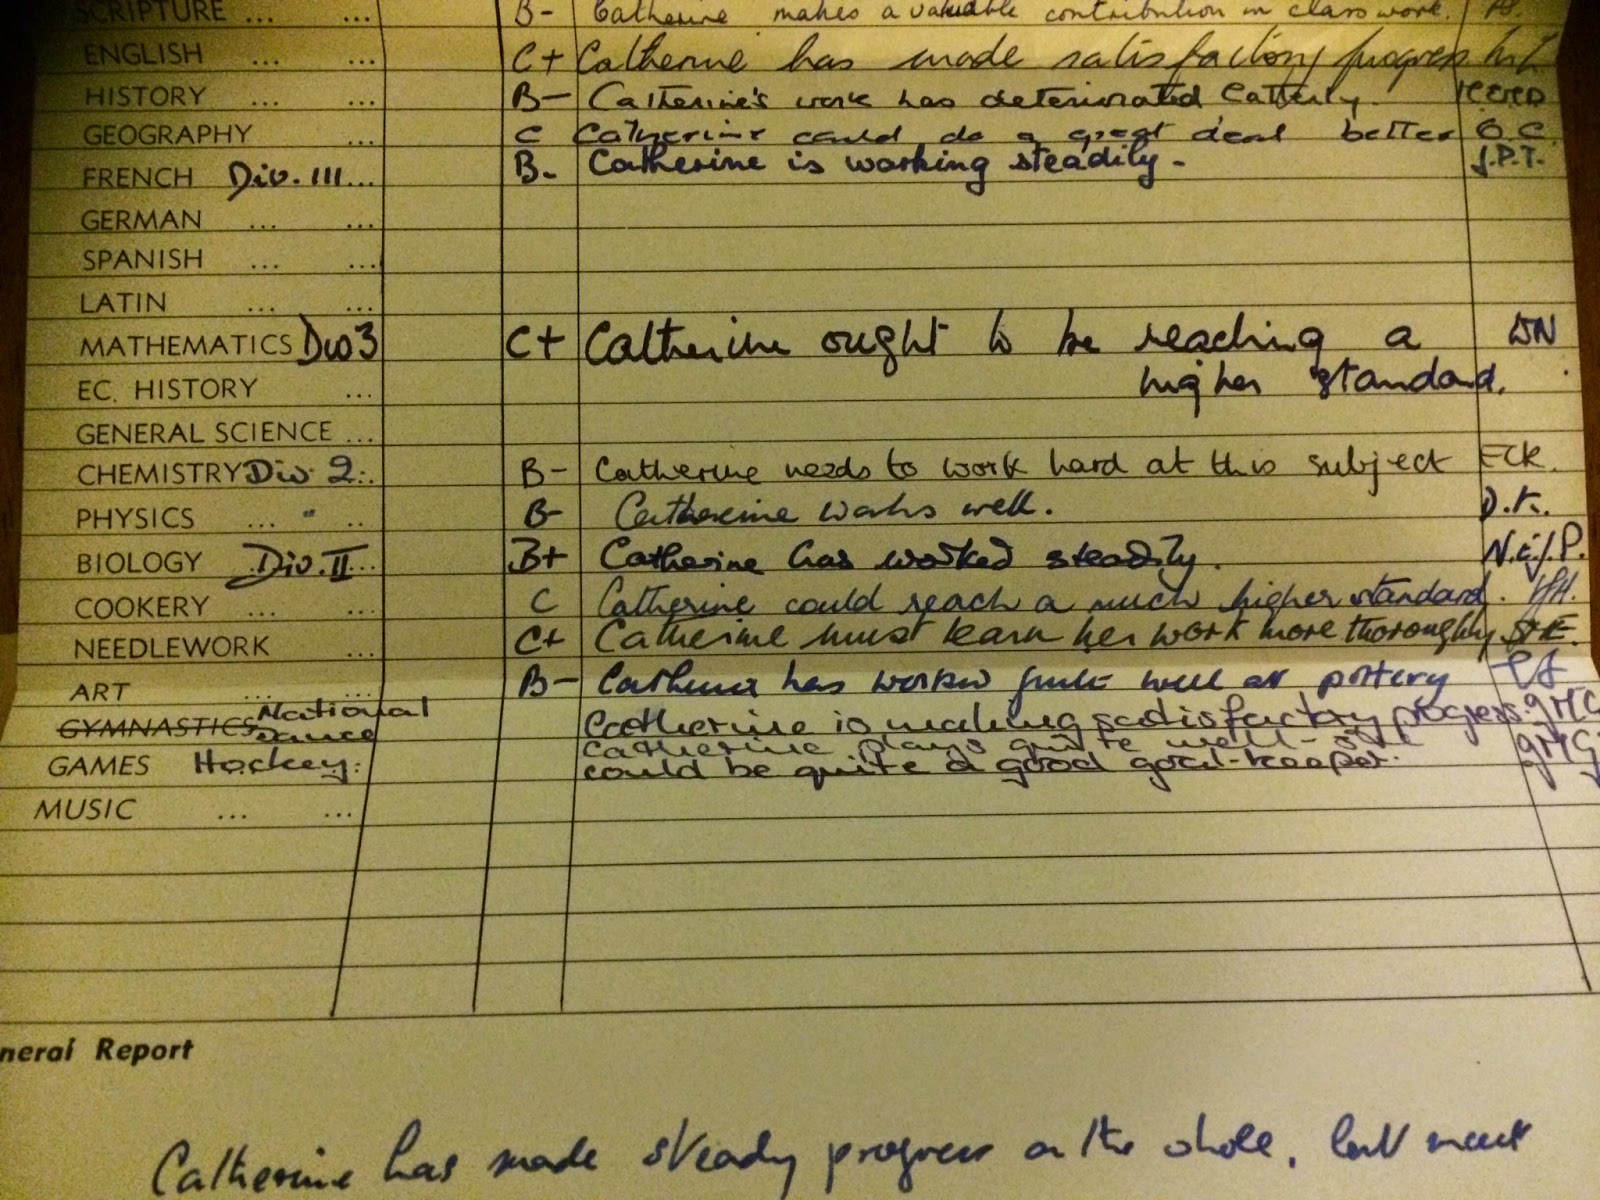 SCRIPTURE ... ... B- Catherine makes a valuable contribution in class work.
ENGLISH ... ... C+ Catherine has made satisfactory progress
HISTORY ... ... B- Catherine's work has deteriorated latterly.
GEOGRAPHY ... C Catherine could do a great deal better O.C.
FRENCH Div. III... B- Catherine is working steadily - J.P.T.
GERMAN ... ...
SPANISH ... ...
LATIN ... ...
MATHEMATICS Div 3 C+ Catherine ought to be reaching a WN
higher standard.
EC. HISTORY ...
GENERAL SCIENCE ...
CHEMISTRY Div 2... B- Catherine needs to work hard at this subject ECK.
PHYSICS ... " .. B- Catherine works well. D.K.
BIOLOGY Div. II... B+ Catherine has worked steadily.
COOKERY ... ... C Catherine could reach a much higher standard.
NEEDLEWORK ... C+ Catherine must learn her work more thoroughly
ART ... ... B- Catherine has worked quite well at pottery
GYMNASTICS National Dance Catherine is making satisfactory progress. GMG
GAMES Hockey: Catherine plays quite well - she
could be quite a good goal-keeper. GMG
MUSIC ... ...
neral Report
Catherine has made steady progress on the whole, but must